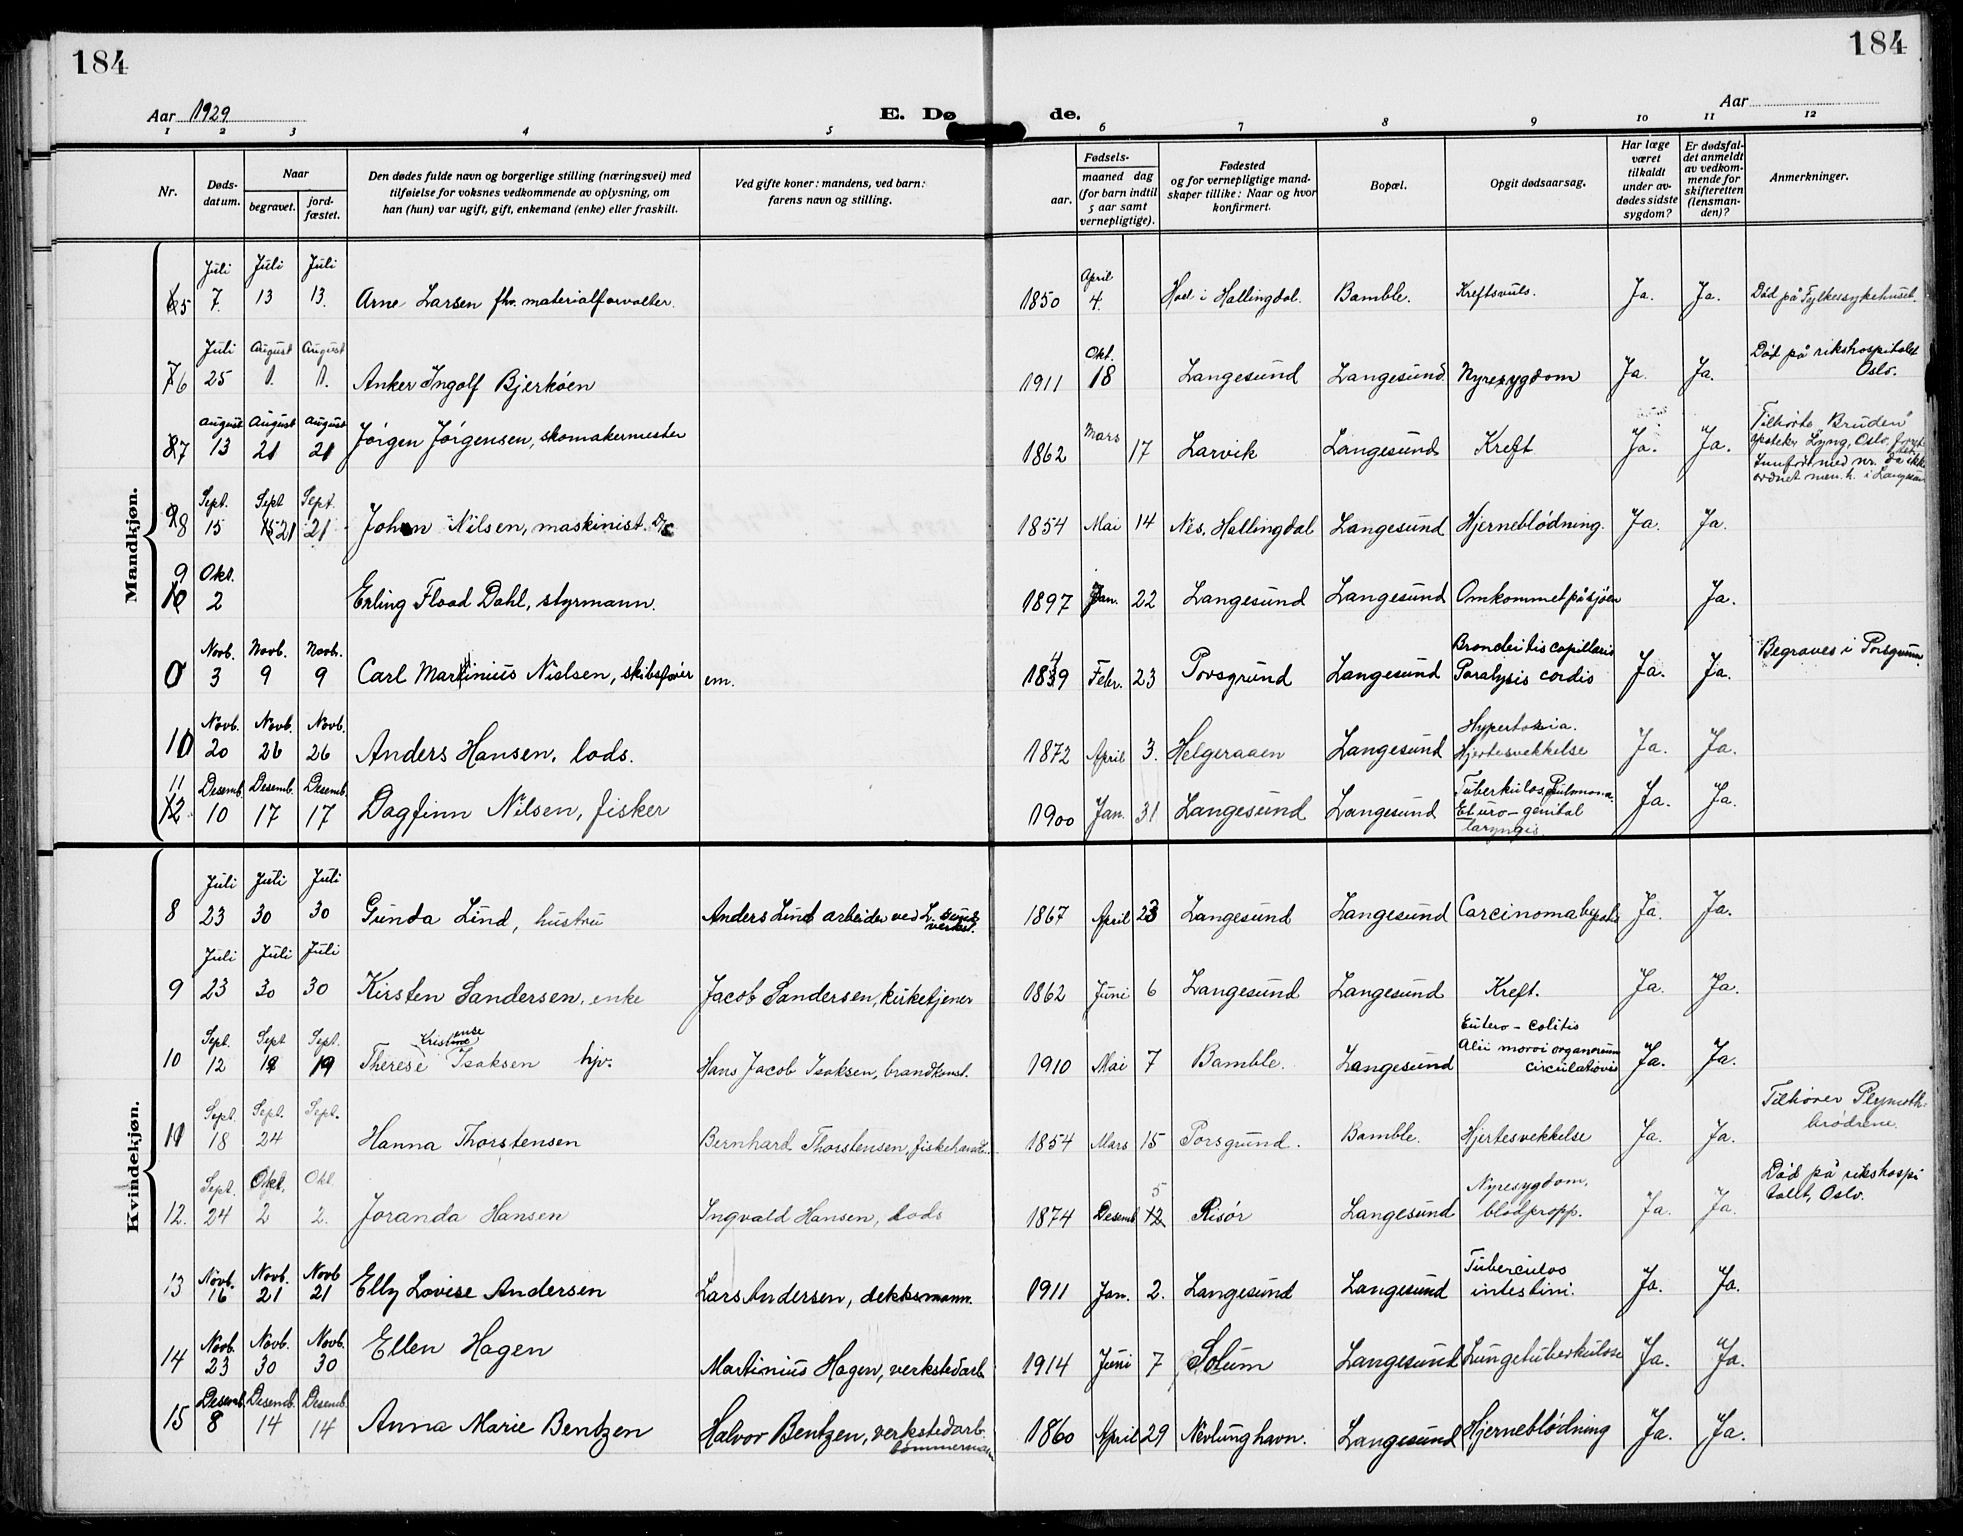 184
184
Aar 1929
E. Dø de.
Aar
1 2 3 4 5 6 7 8 9 10 11 12
Nr.
Døds-
datum.
Naar
begravet.
jord-
fæstet.
Den dødes fulde navn og borgerlige stilling (næringsvei) med
tilføielse for voksnes vedkommende av oplysning, om
han (hun) var ugift, gift, enkemand (enke) eller fraskilt.
Ved gifte koner: mandens, ved barn:
farens navn og stilling.
Fødsels-
aar. maaned dag
(for barn indtil
5 aar samt
vernepligtige).
Fødested
og for vernepligtige mand-
skaper tillike: Naar og hvor
konfirmert.
Bopæl.
Opgit dødsaarsag.
Har læge
været
tilkaldt
under av-
dødes sidste
sygdom?
Er dødsfal-
det anmeldt
av vedkom-
mende for
skifteretten
(lensman-
den)?
Anmerkninger.
Mandkjøn.
5 Juli 7. Juli 13 Juli 13. Arne Larsen fhv. materialforvalter. 1850 April 4. Hol i Hallingdal. Bamble. Kreftsvuls. Ja. Ja. Død på Fylkessykehuset.
6 Juli 25 August 1. August 1. Anker Ingolf Bjerkøen 1911 Okt. 18 Langesund Langesund Nyresygdom Ja. Ja. Død på rikshospitalet
Oslo.
7 August 13 August 21 August 21 Jørgen Jørgensen, skomakermester 1862 Mars 17 Larvik Langesund Kreft Ja. Ja. Tilhørte "Bruden"
apotek. Lyng, Oslo,
8 Sept. 15 Sept 21 Sept. 21 Johan Nilsen, maskinist. 1854 Mai 14 Nes, Hallingdal Langesund Hjerneblødning. Ja. Ja.
9 Okt. 2 Erling Flood Dahl, styrmann. 1897 Jan. 22 Langesund Langesund Omkommet på sjøen Ja.
0 Novb. 3 Novb. 9 Novb. 9 Carl Martinius Nielsen, skibsfører em. 1849 Febr. 23 Porsgrund Langesund Bronchitis capillaris
Paralysis cordis Ja. Ja. Begraves i Porsgrunn
10 Novb. 20 Novb. 26 Novb. 26 Anders Hansen, lods. 1872 April 3. Helgeraaen Langesund Hypertonia.
Hjertesvekkelse Ja. Ja.
11 Desemb. 10 Desemb. 17 Desemb. 17 Dagfinn Nilsen, fisker 1900 Jan. 31 Langesund Langesund Tuberkulos. Pulmona.
Et uro-genital
laryngis Ja. Ja.
Kvindekjøn.
8 Juli 23 Juli 30 Juli 30 Gunda Lind, hustru Anders Lind arbeider ved L. sunds
verkst. 1867 April 23 Langesund Langesund Carcinoma hepatis Ja. Ja.
9 Juli 23 Juli 30 Juli 30 Kirsten Sandersen, enke Jacob Sandersen, kirketjener 1862 Juni 6 Langesund Langesund Kreft. Ja. Ja.
10 Sept. 12 Sept 19 Sept. 19 Therese Isaksen hjv. Hans Jacob Isaksen, brandkonst. 1910 Mai 7 Bamble. Langesund Entero-colitis
Alii morvi organorum
circulationis Ja. Ja.
11 Sept. 18 Sept. 24 Sept. Hanna Thorstensen Bernhard Thorstensen, fiskehandl. 1854 Mars 15 Porsgrund. Bamble. Hjertesvekkelse Ja. Ja. Tilhører Plymoth-
brødrene.
12. Sept. 24 Okt. 2 Okt. 2. Joranda Hansen Ingvald Hansen, lods 1874 Desemb 5 Risør Langesund Nyresygdom,
blodpropp. Ja. Ja. Død på rikshospi
talet, Oslo.
13 Novb. 16 Novb. 21 Novb 21 Elly Lovise Andersen Lars Andersen, dekksmann. 1911 Jan. 2. Langesund Langesund Tuberculos
intestini. Ja. Ja.
14 Novb. 23 Novb. 30 Novb. 30 Ellen Hagen Martinius Hagen, verkstedarb. 1914 Juni 7 Solum Langesund Lungetuberkulose Ja. Ja.
15 Desemb. 8 Desemb. 14 Desemb. 14 Anna Marie Bentzen Halvor Bentzen, verkstedarb.
tømmerman 1860 April 29 Nevlunghavn. Langesund Hjerneblødning Ja. Ja.